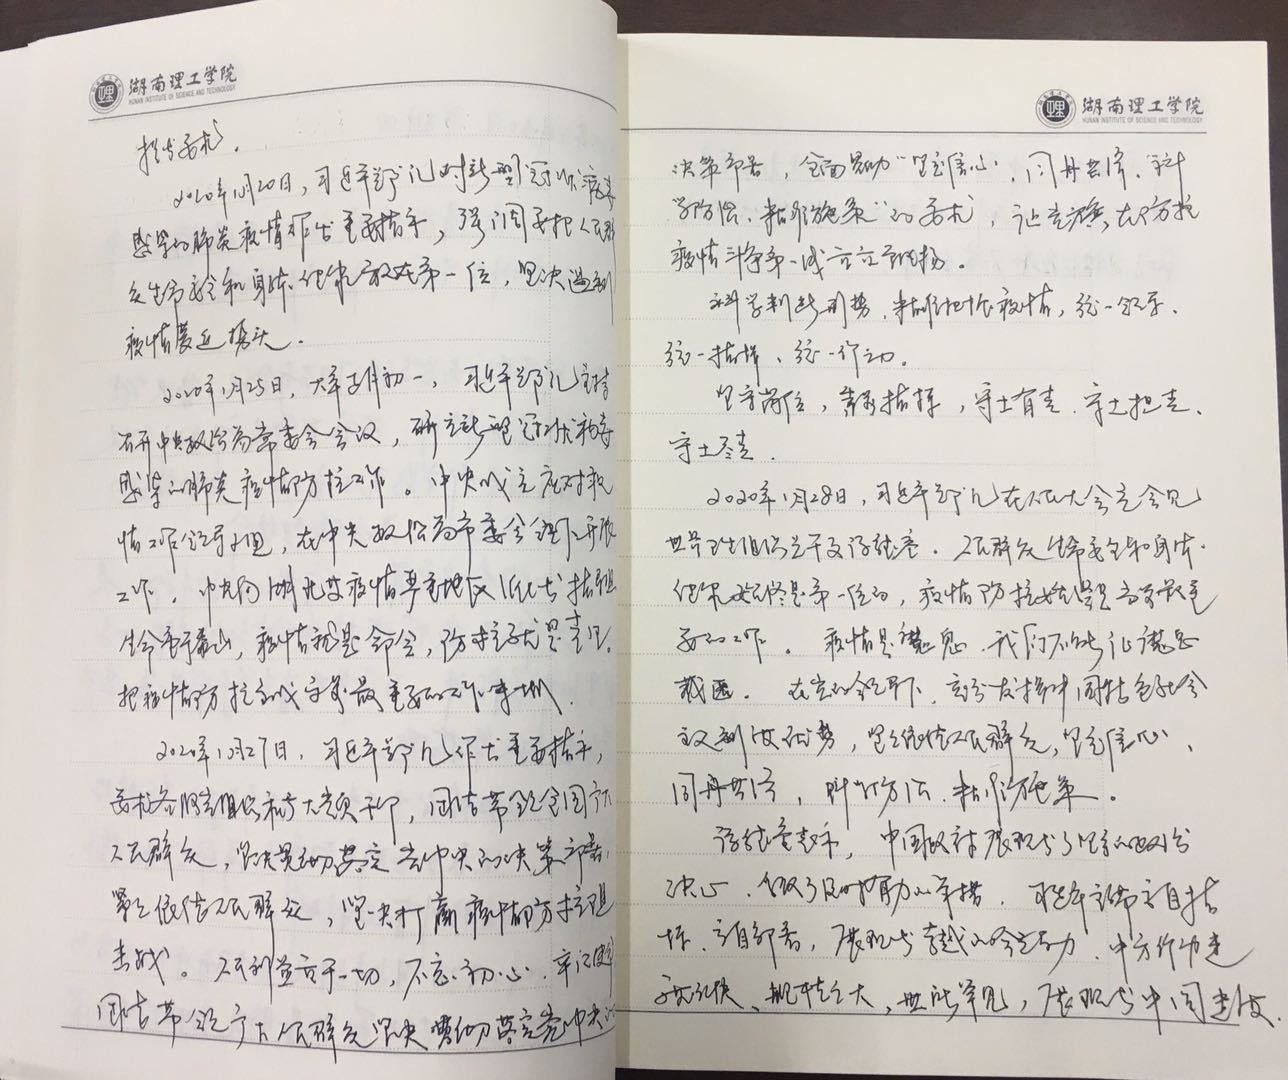 湖南理工学院
HUNAN INSTITUTE OF SCIENCE AND TECHNOLOGY
提出要求.
2020年1月20日, 习近平总书记对新型冠状病毒
感染的肺炎疫情作出重要指示, 强调要把人民群
众生命安全和身体健康放在第一位, 坚决遏制
疫情蔓延势头.
2020年1月25日, 大年正月初一, 习近平总书记主持
召开中央政治局常委会会议, 研究新型冠状病毒
感染的肺炎疫情防控工作。中央成立应对疫
情工作领导小组, 在中央政治局常委会领导下开展
工作. 中央向湖北等疫情严重地区派出指导组
生命重于泰山, 疫情就是命令, 防控就是责任.
把疫情防控当成当前最重要的工作来抓.
2020年1月27日, 习近平总书记作出重要指示,
要求各级党组织和广大党员干部, 团结带领全国广大
人民群众, 坚决贯彻落实党中央的决策部署,
紧紧依靠人民群众, 坚决打赢疫情防控阻
击战。人民利益高于一切, 不忘初心. 牢记使命
团结带领广大人民群众坚决贯彻落实党中央的
湖南理工学院
HUNAN INSTITUTE OF SCIENCE AND TECHNOLOGY
决策部署, 全面贯彻“坚定信心、同舟共济、科
学防治、精准施策”的要求, 让党旗在防控
疫情斗争第一线高高飘扬。
科学判断形势, 精准把握疫情, 统一领导、
统一指挥、统一行动。
坚守岗位, 靠前指挥, 守土有责、守土担责、
守土尽责.
2020年1月28日, 习近平总书记在人民大会堂会见
世界卫生组织总干事谭德塞. 人民群众生命安全和身体
健康始终是第一位的, 疫情防控是当前最重
要的工作。疫情是魔鬼. 我们不能让魔鬼
藏匿. 在党的领导下, 充分发挥中国特色社会
主义制度优势, 紧紧依靠人民群众, 坚定信心、
同舟共济, 科学防治、精准施策。
谭德塞表示, 中国政府展现出了坚定的政治
决心. 采取了及时有力的举措. 习近平主席亲自指
挥、亲自部署, 展现出卓越的领导能力. 中方行动速
度之快、规模之大、世所罕见, 展现出中国速度.